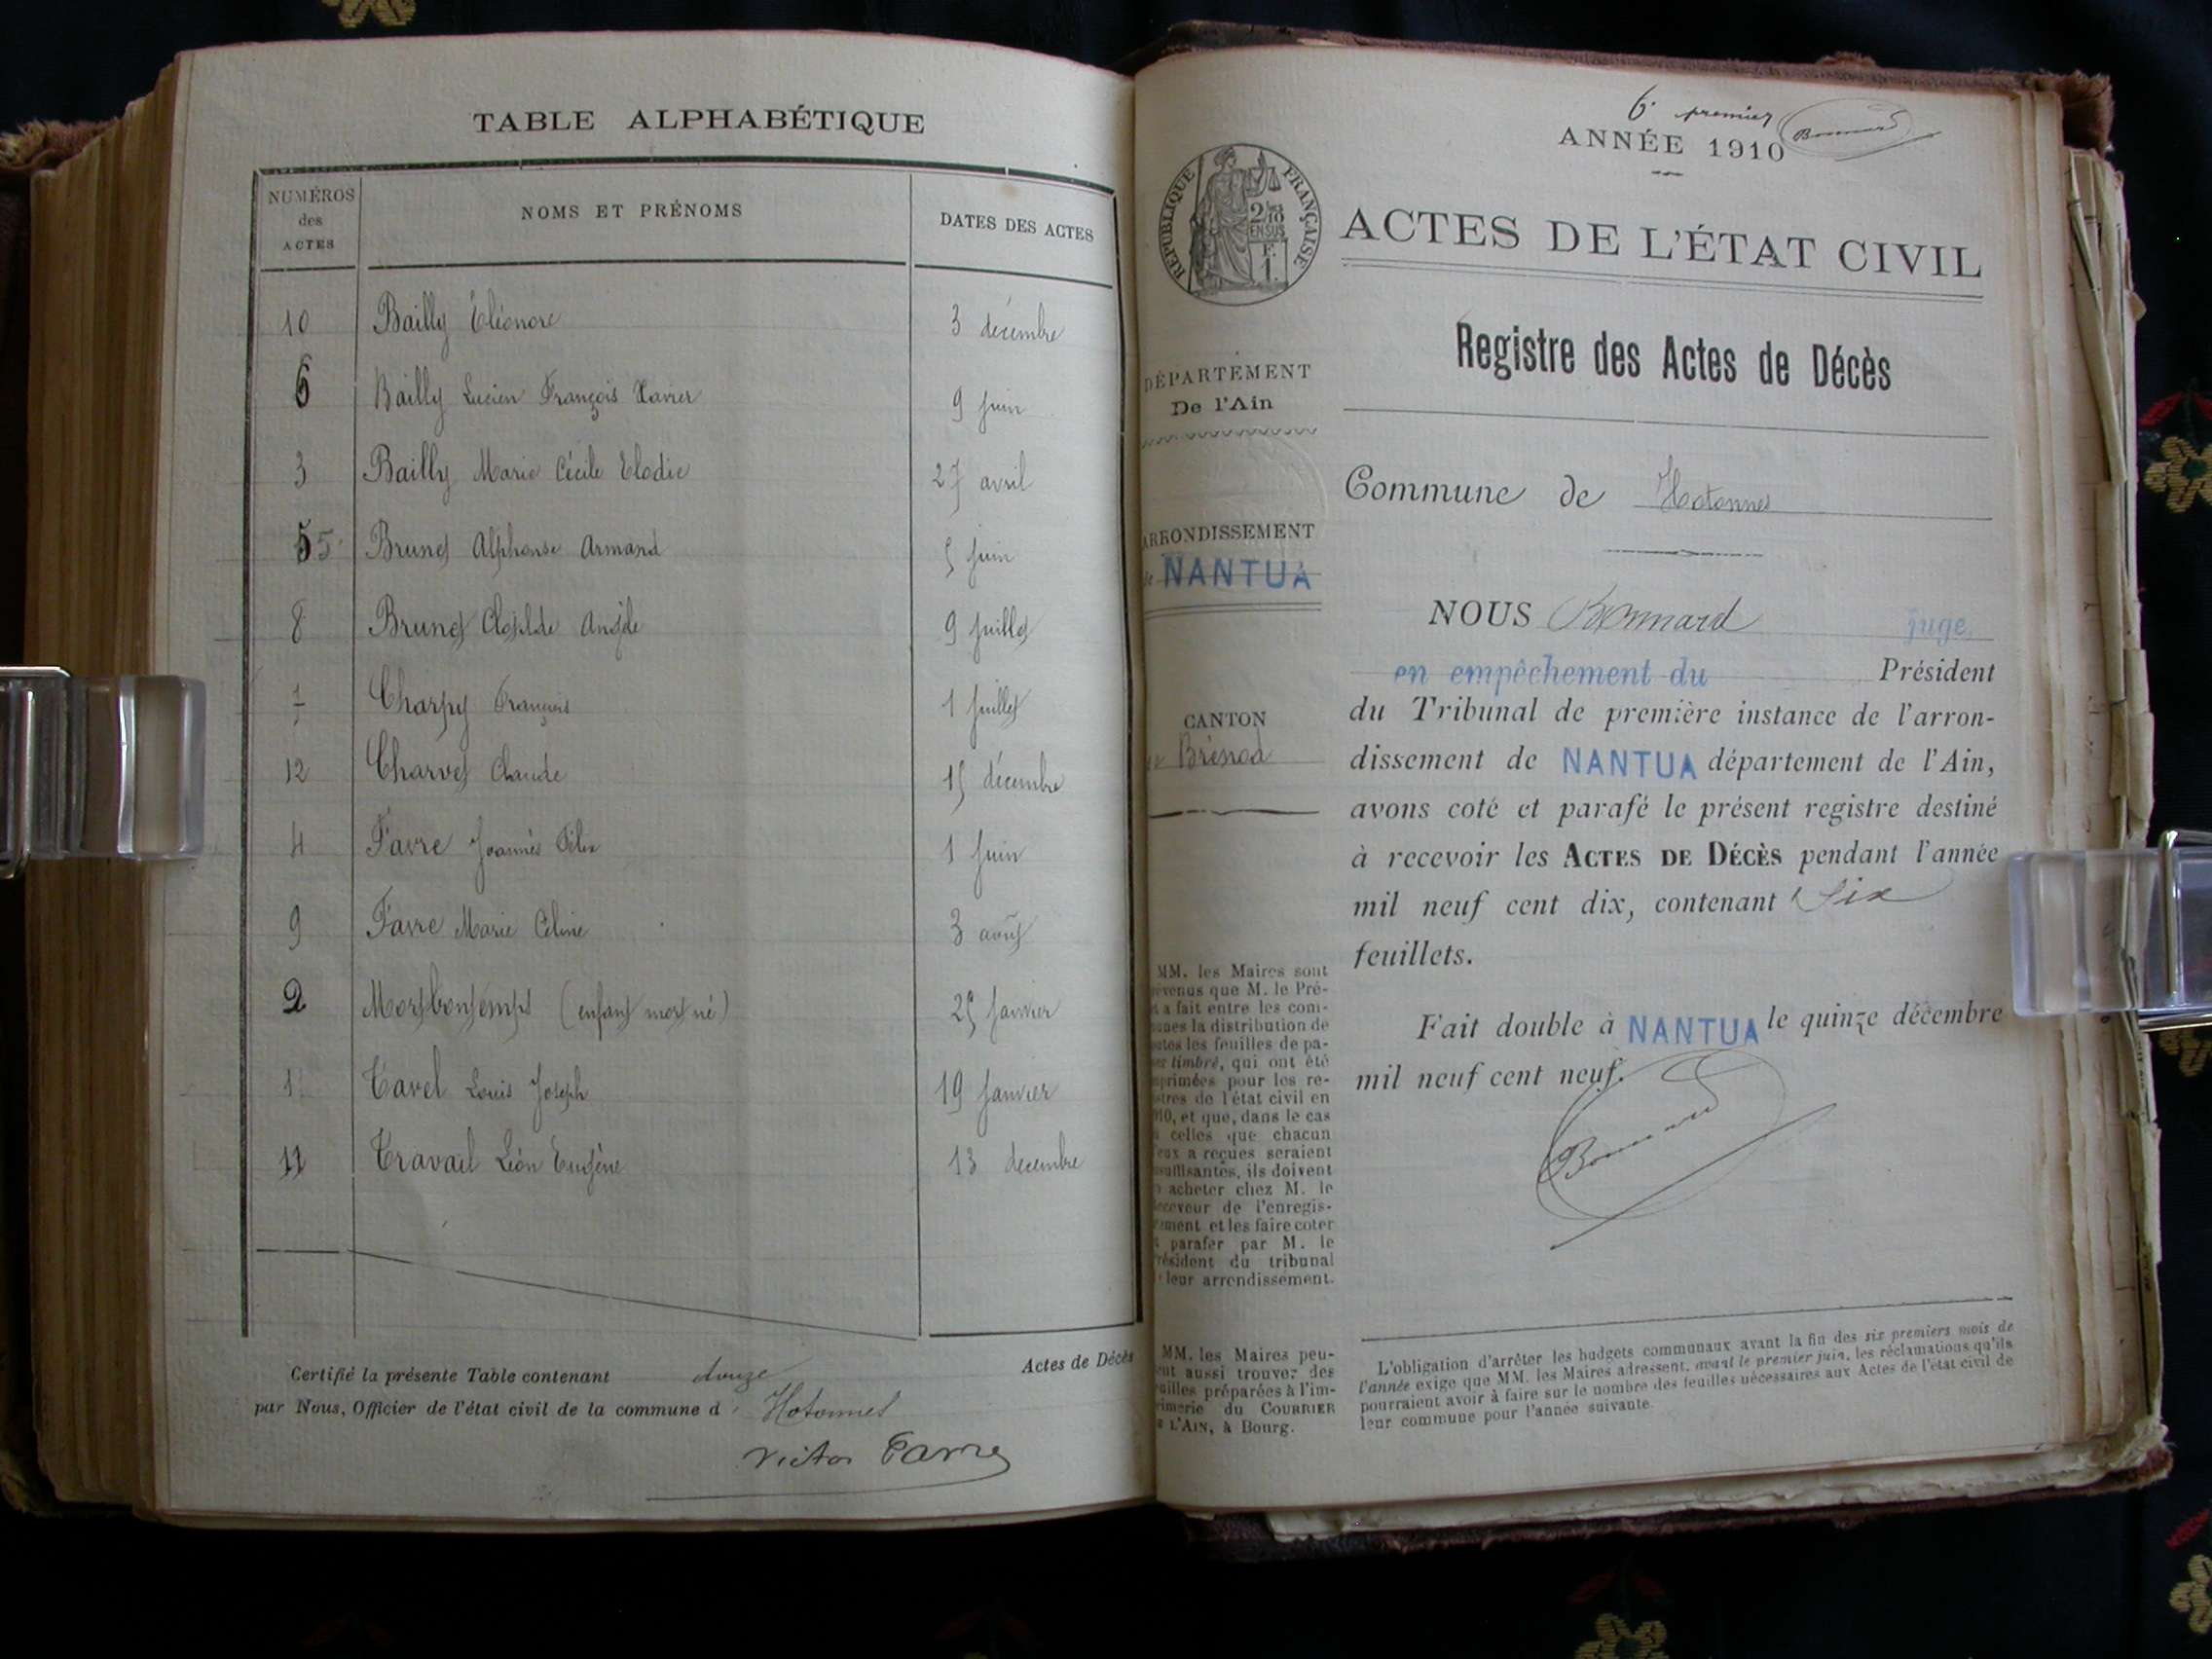 TABLE ALPHABÉTIQUE
NUMÉROS des ACTES
NOMS ET PRÉNOMS
DATES DES ACTES
10 Bailly Eléonore 3 décembre
6 Bailly Lucien François Xavier 9 juin
3 Bailly Marie Cécile Elodie 27 avril
5 5 Brunet Alphonse Armand 5 juin
8 Brunet Clotilde Angèle 9 juillet
7 Charpy François 1 juillet
12 Charvet Claude 15 décembre
4 Favre Joannès Félix 1 juin
9 Favre Marie Céline 3 août
2 Montbontemps (enfant mort né) 25 janvier
1 Tavel Louis Joseph 19 janvier
11 Travail Léon Eugène 13 decembre
Certifié la présente Table contenant douze Actes de Décès
par Nous, Officier de l'état civil de la commune d' Hotonnes
Victor Favre
6. premier Bonnard
ANNÉE 1910
RÉPUBLIQUE FRANÇAISE
2/10 EN SUS
F. 1
ACTES DE L'ÉTAT CIVIL
Registre des Actes de Décès
DÉPARTEMENT
De l'Ain
Commune de Hotonnes
ARRONDISSEMENT
de NANTUA
NOUS Bonnard juge
en empêchement du Président
du Tribunal de première instance de l'arron-
dissement de NANTUA département de l'Ain,
avons coté et parafé le présent registre destiné
à recevoir les ACTES DE DÉCÈS pendant l'année
mil neuf cent dix, contenant Six
feuillets.
CANTON
de Brénod
Fait double à NANTUA le quinze décembre
mil neuf cent neuf.
Bonnard
MM. les Maires sont
prévenus que M. le Pré-
fet a fait entre les com-
munes la distribution de
toutes les feuilles de pa-
pier timbré, qui ont été
imprimées pour les re-
gistres de l'état civil en
1910, et que, dans le cas
où celles que chacun
d'eux a reçues seraient
insuffisantes, ils doivent
en acheter chez M. le
Receveur de l'enregis-
trement et les faire coter
et parafer par M. le
Président du tribunal
de leur arrondissement.
MM. les Maires peu-
vent aussi trouver des
feuilles préparées à l'im-
primerie du COURRIER
DE L'AIN, à Bourg.
L'obligation d'arrêter les budgets communaux avant la fin des six premiers mois de
l'année exige que MM. les Maires adressent, avant le premier juin, les réclamations qu'ils
pourraient avoir à faire sur le nombre des feuilles nécessaires aux Actes de l'état civil de
leur commune pour l'année suivante.